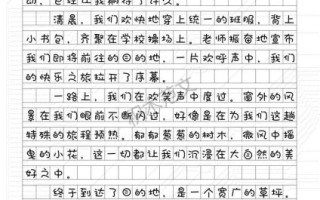 清晨，我们欢快地穿上统一的班服，背上
小书包，齐聚在学校操场上。老师振奋地宣布
我们即将前往的目的地，一片欢呼声中，我们
的快乐之旅拉开了序幕。
一路上，我们在欢笑声中度过。窗外的风
景在我们眼前不断闪过，好像是在为我们这趟
特殊的旅程预热。郁郁葱葱的树木，微风中摇
曳的小花，这一切都让我们沉浸在大自然的美
好之中。
终于到达了目的地，是一个宽广的草坪。